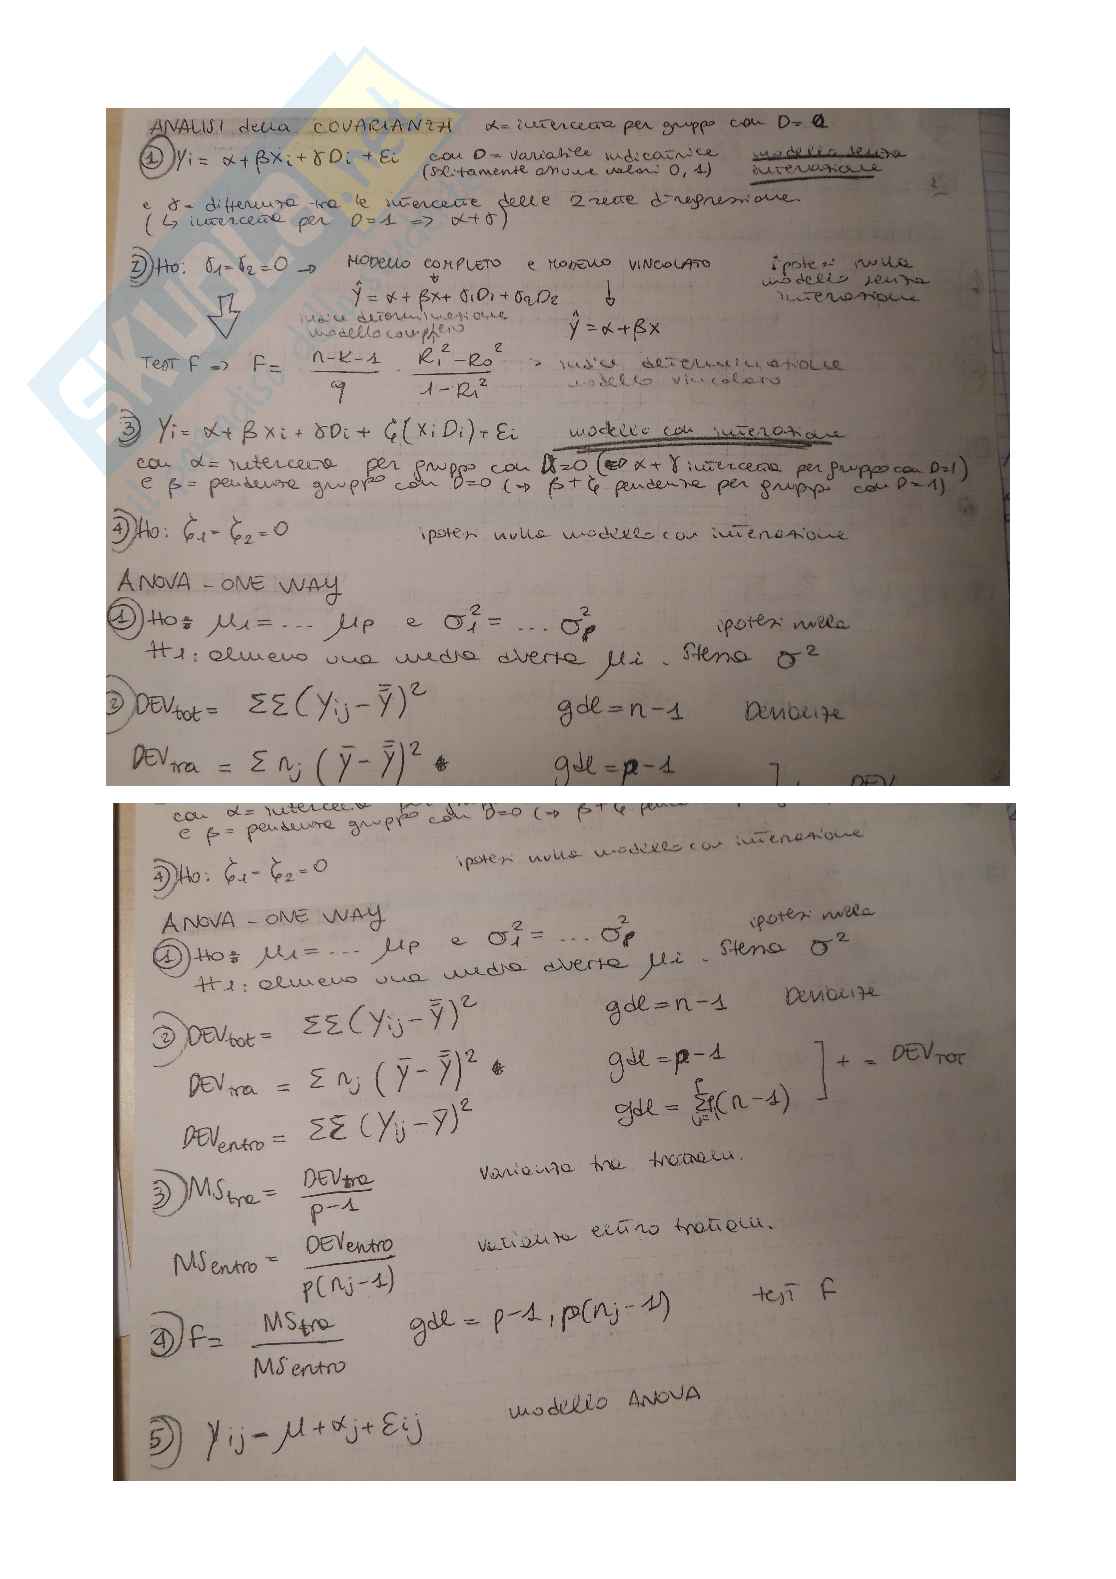 ANALISI della COVARIANZA α = intercetta per gruppo con D = 0
① Yi = α + βxi + γDi + εi con D = variabile indicatrice modello senza
(solitamente assume valori 0, 1) interazione
e γ = differenza tra le intercette delle 2 rette di regressione.
(↳ intercetta per D=1 => α+γ)
② Ho: γ1 = γ2 = 0 → MODELLO COMPLETO e MODELLO VINCOLATO ipotesi nulla
modello senza
interazione
Ŷ = α + βx + γ1D1 + γ2D2
indice determinazione
modello completo
Ŷ = α + βx
TEST F => F = (n-K-1)/q · (R1² - R0²)/(1 - R1²) → indice determinazione
modello vincolato
③ Yi = α + βxi + γDi + ζ(xiDi) + εi modello con interazione
con α = intercetta per gruppo con D=0 (=> α + γ intercetta per gruppo con D=1)
e β = pendenza gruppo con D=0 (→ β + ζ pendenza per gruppo con D=1)
④ Ho: ζ1 = ζ2 = 0 ipotesi nulla modello con interazione
ANOVA - ONE WAY
① Ho: μ1 = ... μp e σ1² = ... σp² ipotesi nulla
H1: almeno una media diversa μi. Stessa σ²
② DEVtot = ΣΣ(Yij - y̿)² gdl = n-1 Devianze
DEVtra = Σ nj (ȳ - y̿)² gdl = p-1
DEV
con α = intercetta per
e β = pendenza gruppo con D=0 (→ β + ζ
④ Ho: ζ1 = ζ2 = 0 ipotesi nulla modello con interazione
ANOVA - ONE WAY
① Ho: μ1 = ... μp e σ1² = ... σp² ipotesi nulla
H1: almeno una media diversa μi. Stessa σ²
② DEVtot = ΣΣ(Yij - y̿)² gdl = n-1 Devianze
DEVtra = Σ nj (ȳ - y̿)² gdl = p-1 ] + = DEVTOT
DEVentro = ΣΣ (Yij - ȳ)² gdl = Σ(n-1)
③ MStra = DEVtra/(p-1) varianza tra trattam.
MSentro = DEVentro/(p(nj-1)) varianza entro trattam.
④ F = MStra/MSentro gdl = p-1, p(nj-1) test F
⑤ Yij = μ + αj + εij modello ANOVA
SKUOLA.net